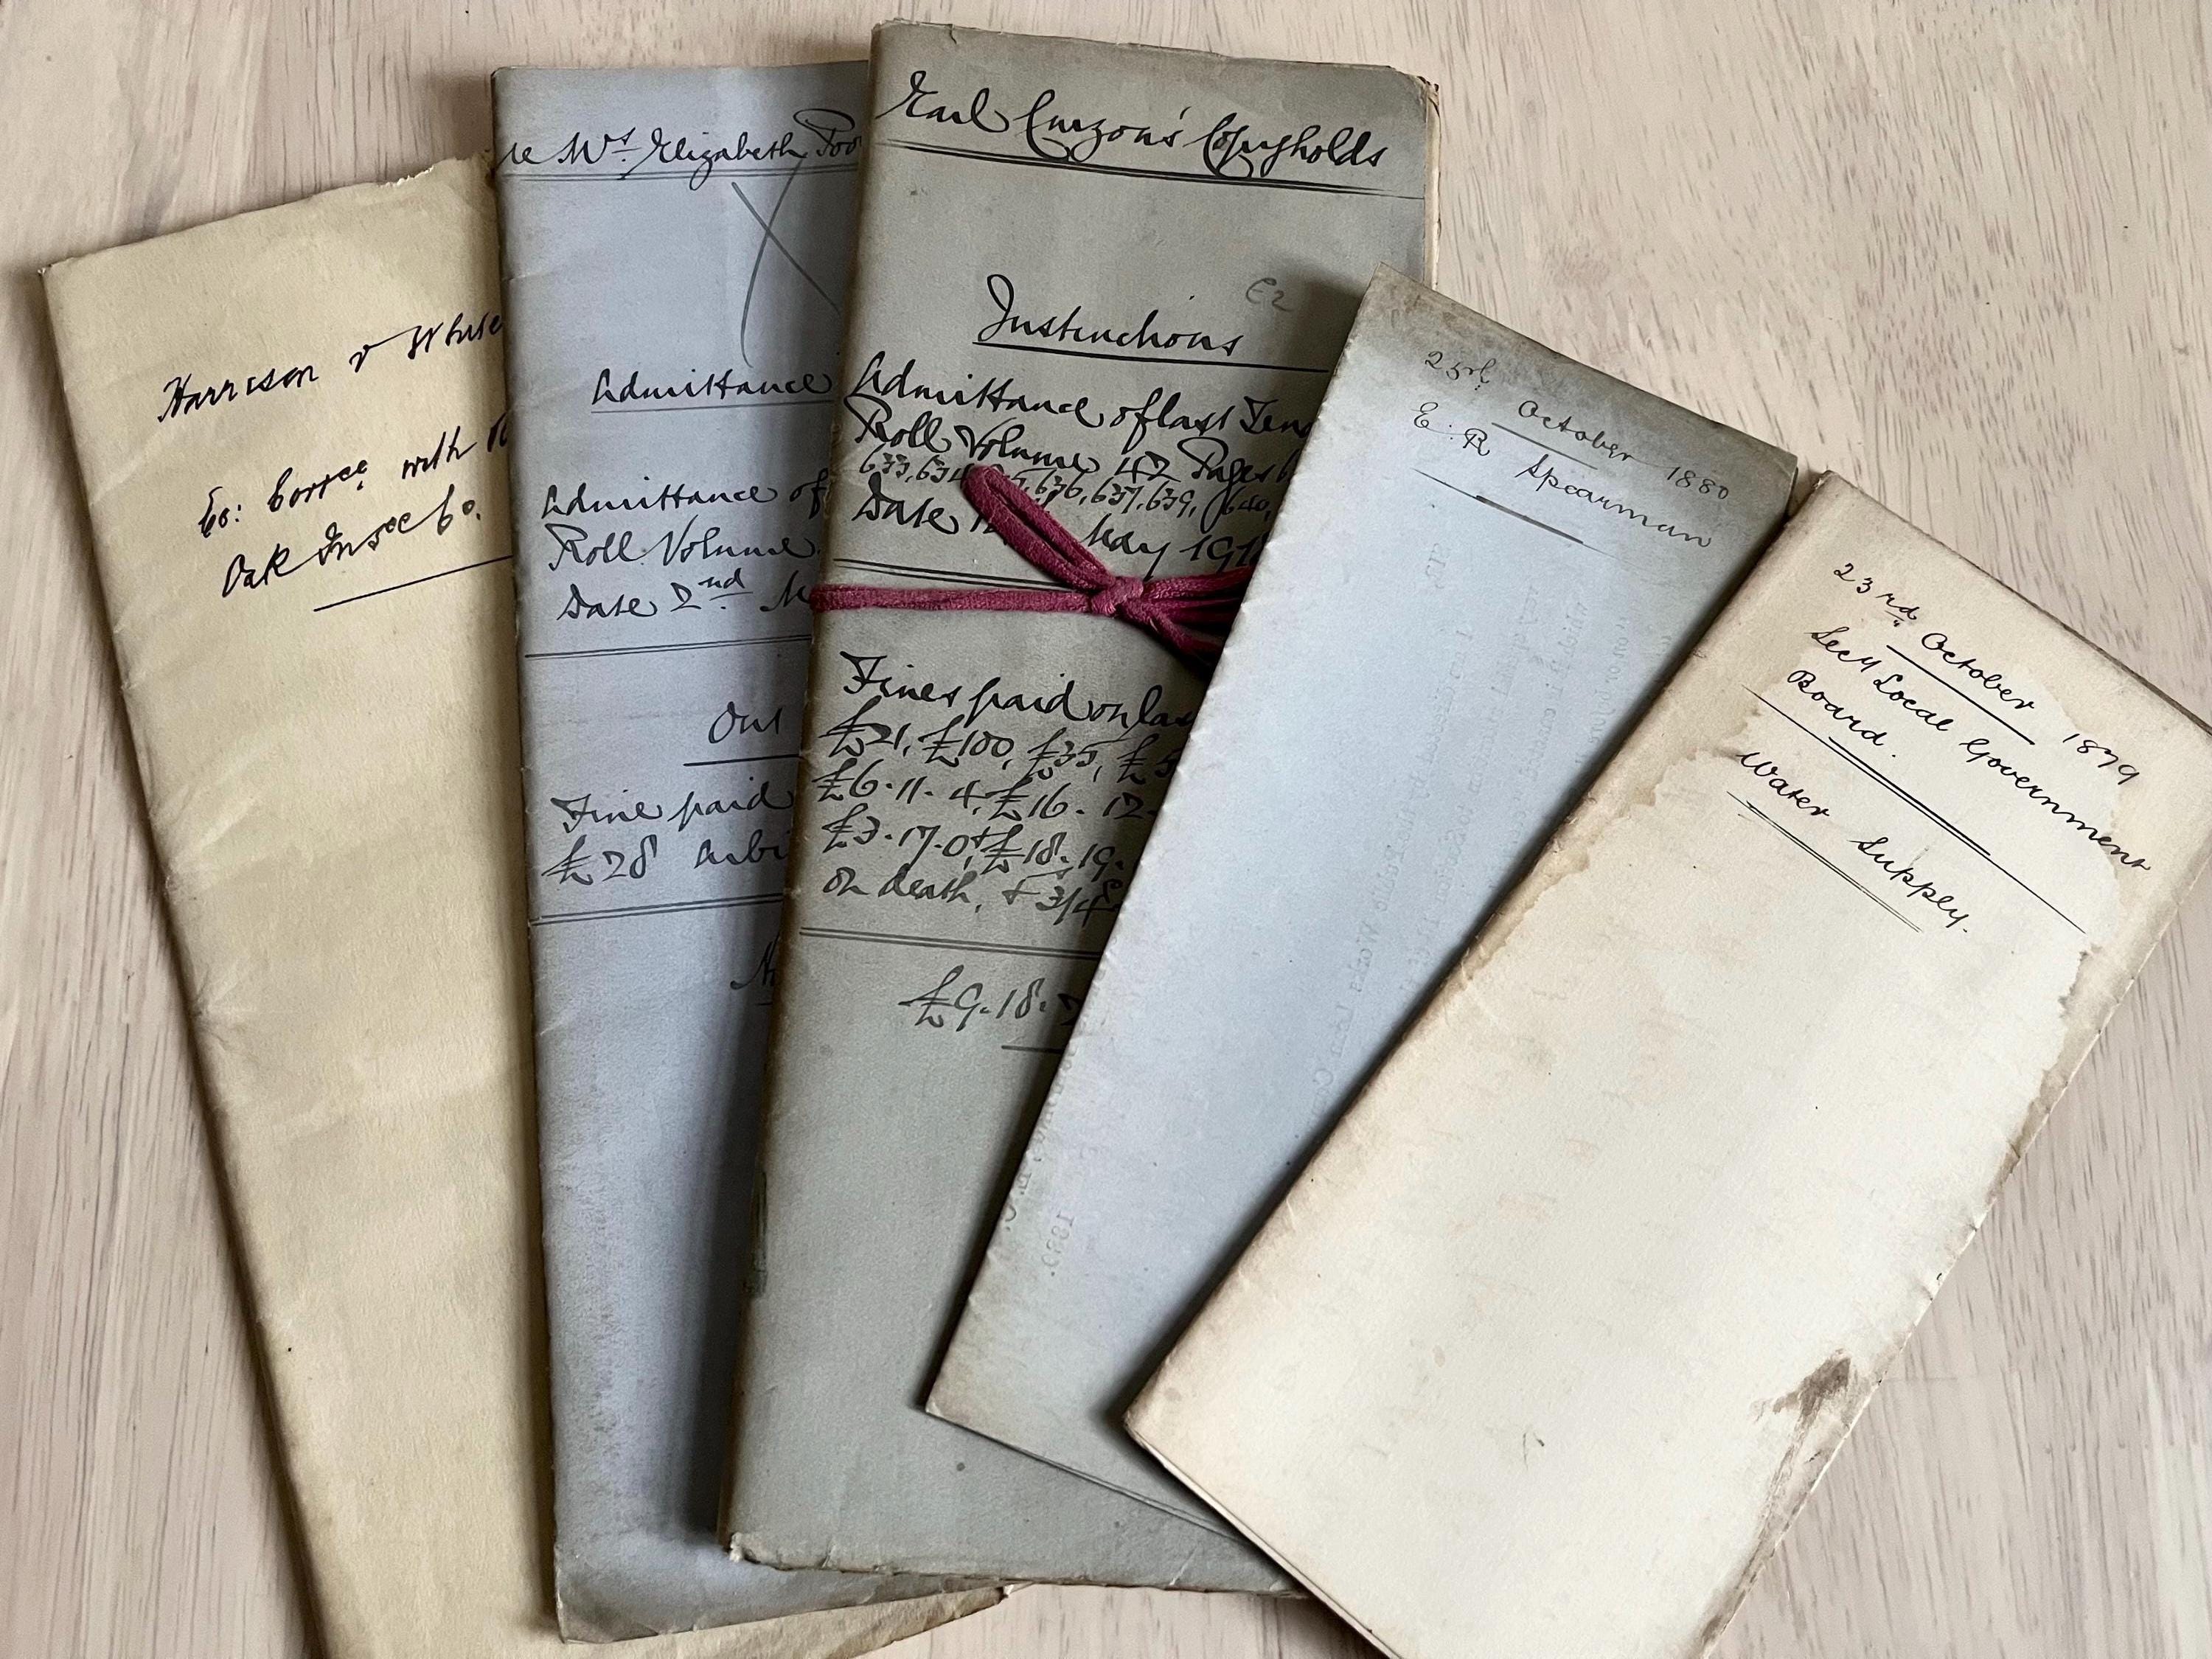 Harrison v White
Co: Corrce. with R
Oak Insce Co.
re Mrs. Elizabeth Poo
Admittance
Admittance of
Roll: Volume
Date 2nd. M
Out
Fine paid
£28 Arbi
Earl Curzon's Copyholds
E2
Instructions
Admittance of last Tena
Roll Volume 42 Pages
633, 634, 636, 637, 639, 640,
Date May 191
Fines paid on las
£21, £100, £35, £5
£6-11-4, £16-12-
£3-17-0 + £18-19-
on death, + 3/4
£9-18-2
23rd. October 1880
E. R Spearman
23rd October 1879
Secy Local Government
Board.
Water Supply.